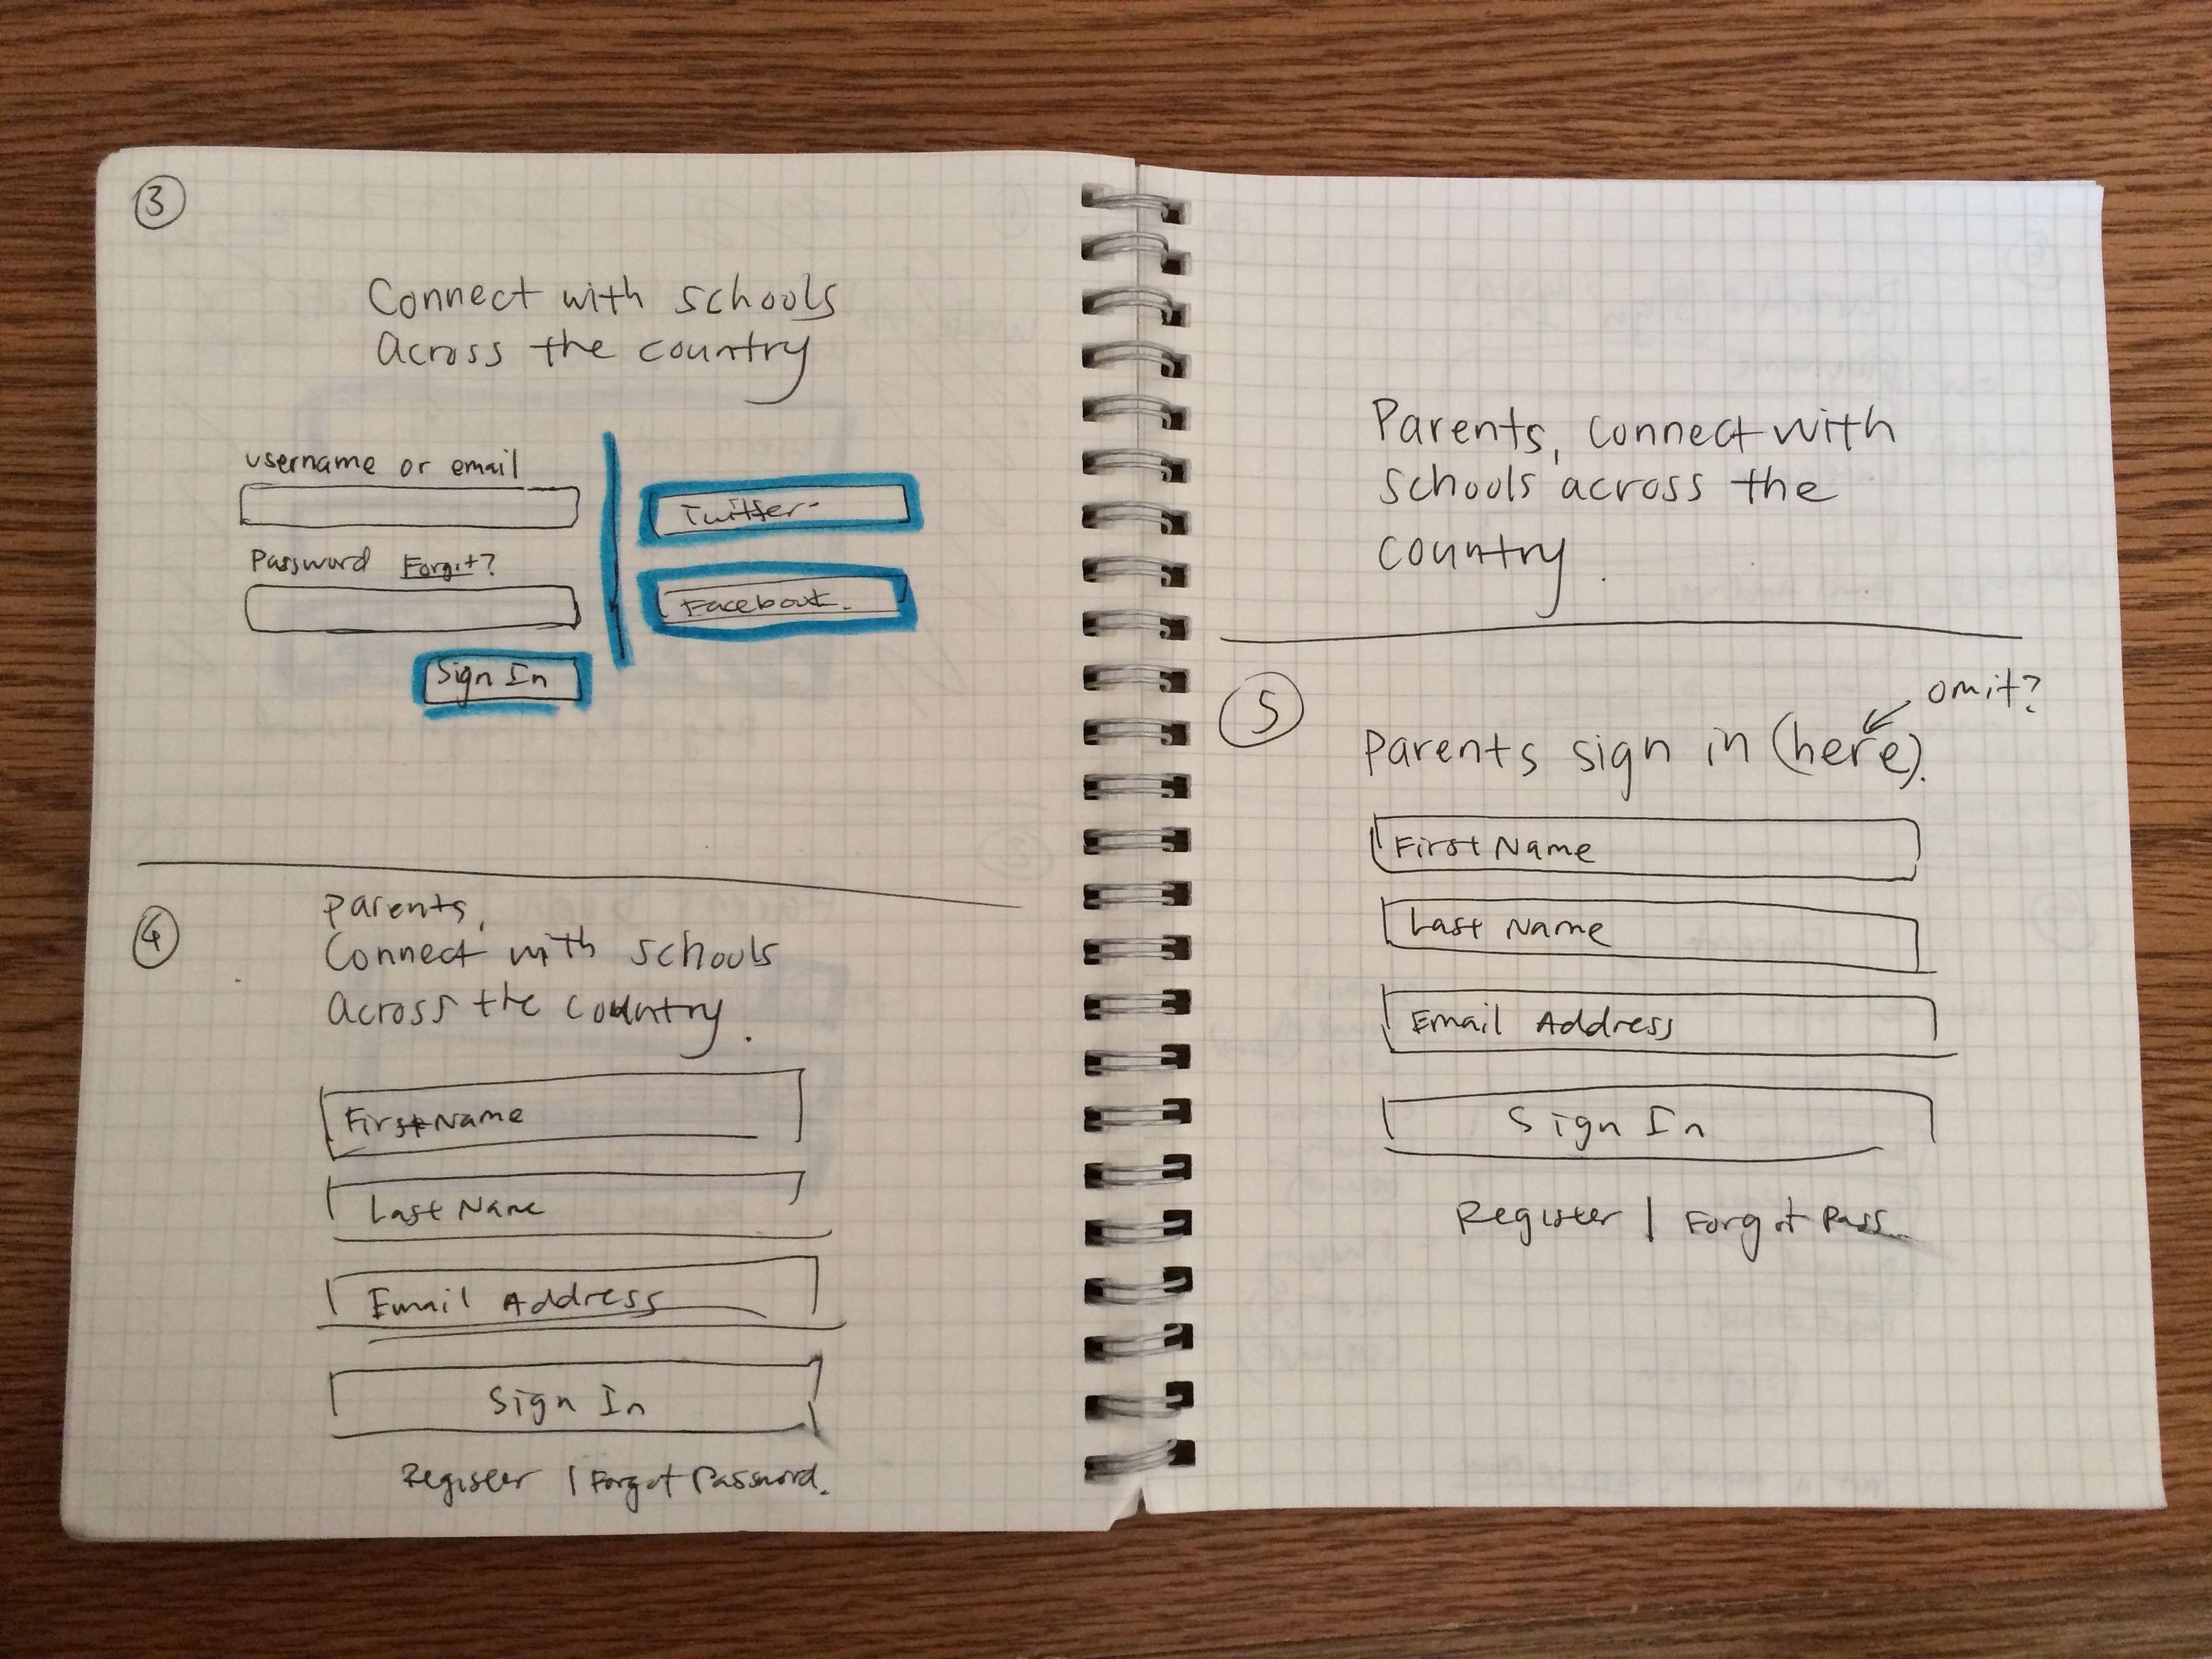 3
Connect with schools
Across the country
username or email
Password Forgot?
Sign In
Twitter
Facebook.
4
Parents,
Connect with schools
Across the country.
First Name
Last Name
Email Address
Sign In
Register | Forgot Password.
Parents, connect with
schools across the
country.
5
omit?
Parents sign in (here).
First Name
Last Name
Email Address
Sign In
Register | Forgot Pass